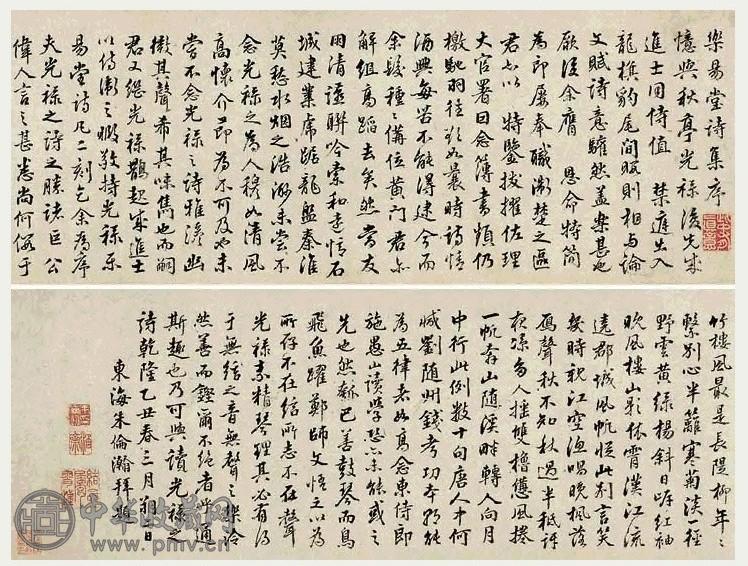 樂易堂詩集序
憶與秋亭光祿後先成
進士同侍值 禁廷出入
龍旗豹尾間暇則相与論
文賦詩意雖然蓋樂甚也
厥後余膺 恩命特簡
為即屢奉職衡楚之區
君亦以 特鑒拔擢佐理
大官署回念簿書煩仍
檄馳羽往欲如曩時詩情
酒興每苦不能得逮今而
余髮種種備位黃門君亦
解組高蹈去矣然當友
用清謳聯吟索和走情石
城建業席踞龍盤秦淮
莫愁水烟之浩渺未嘗不
念光祿之為人穆如清風
高懷介節為不可及也未
嘗不念光祿之詩雅澹幽
微其聲希其味雋也而嗣
君又繼光祿鵲起成進士
以侍衛之暇敬持光祿樂
易堂詩凡二刻乞余為序
夫光祿之詩之勝諸巨公
偉人言之甚悉尚何容于
竹樓風最是長隄柳年々
繫別心半籬寒菊淡一徑
野雲黃綠楊斜日岸紅袖
晚風樓山影依霄漢江流
遶郡城風帆從此別言笑
幾時親江空漁唱晚楓落
雁聲秋不知秋過半秪訝
夜添多人摇雙櫓儘風捲
一帆存山随溪畔轉人向月
中行此例數十句唐人中何
減劉隨州錢考功本朝能
為五律者如高念東侍郎
施愚山讀學恐亦未能或之
先也然瓠巴善鼓琴而鳥
飛魚躍鄭師文悟之以為
所存不在絃所志不在聲
光祿素精琴理其必有得
于無絃之音無聲之樂泠
然善而鏗爾不絕者乎通
斯趣也乃可與讀光祿之
詩乾隆乙丑春三月朔日
東海朱倫瀚拜題
中华收藏网
www.pmv.cn